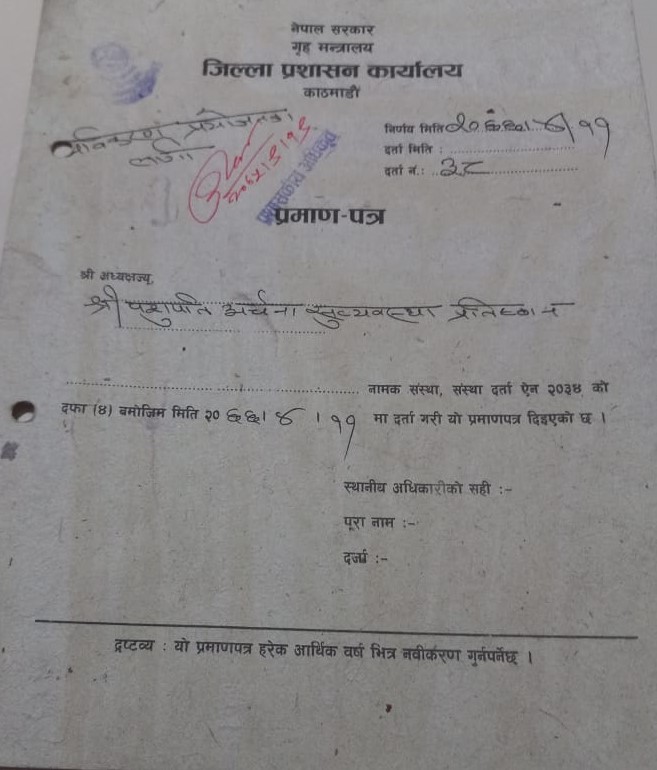 नेपाल सरकार
गृह मन्त्रालय
जिल्ला प्रशासन कार्यालय
काठमाडौं
नविकरण प्रयोजनका
लागी
निर्णय मिति २०६६।४।११
दर्ता मिति :
दर्ता नं.: ३८
प्रशासकीय अधिकृत
प्रमाण-पत्र
श्री अध्यक्षज्यू,
श्री पशुपति अर्चना सुव्यवस्था प्रतिष्ठान
नामक संस्था, संस्था दर्ता ऐन २०३४ को
दफा (४) बमोजिम मिति २० ६६। ४ । ११ मा दर्ता गरी यो प्रमाणपत्र दिइएको छ ।
स्थानीय अधिकारीको सही :-
पूरा नाम :-
दर्जा :-
द्रष्टव्य : यो प्रमाणपत्र हरेक आर्थिक वर्ष भित्र नवीकरण गुर्नपर्नेछ ।